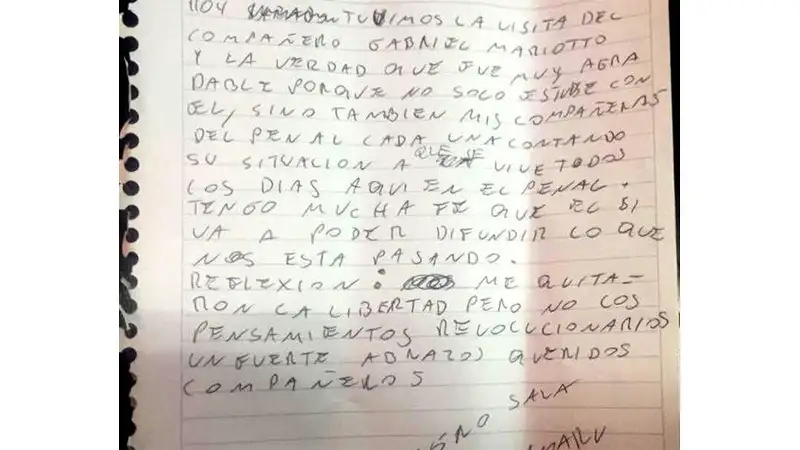 HOY TUVIMOS LA VISITA DEL
COMPAÑERO GABRIEL MARIOTTO
Y LA VERDAD QUE FUE MUY AGRA
DABLE PORQUE NO SOLO ESTUBE CON
EL, SINO TAMBIEN MIS COMPAÑERAS
DEL PENAL CADA UNA CONTANDO
SU SITUACION A QUE SE VIVE TODOS
LOS DIAS AQUI EN EL PENAL.
TENGO MUCHA FE QUE EL SI
VA A PODER DIFUNDIR LO QUE
NOS ESTA PASANDO.
REFLEXION: ME QUITA-
RON LA LIBERTAD PERO NO LOS
PENSAMIENTOS REVOLUCIONARIOS
UN FUERTE ABRAZO) QUERIDOS
COMPAÑEROS
SALA